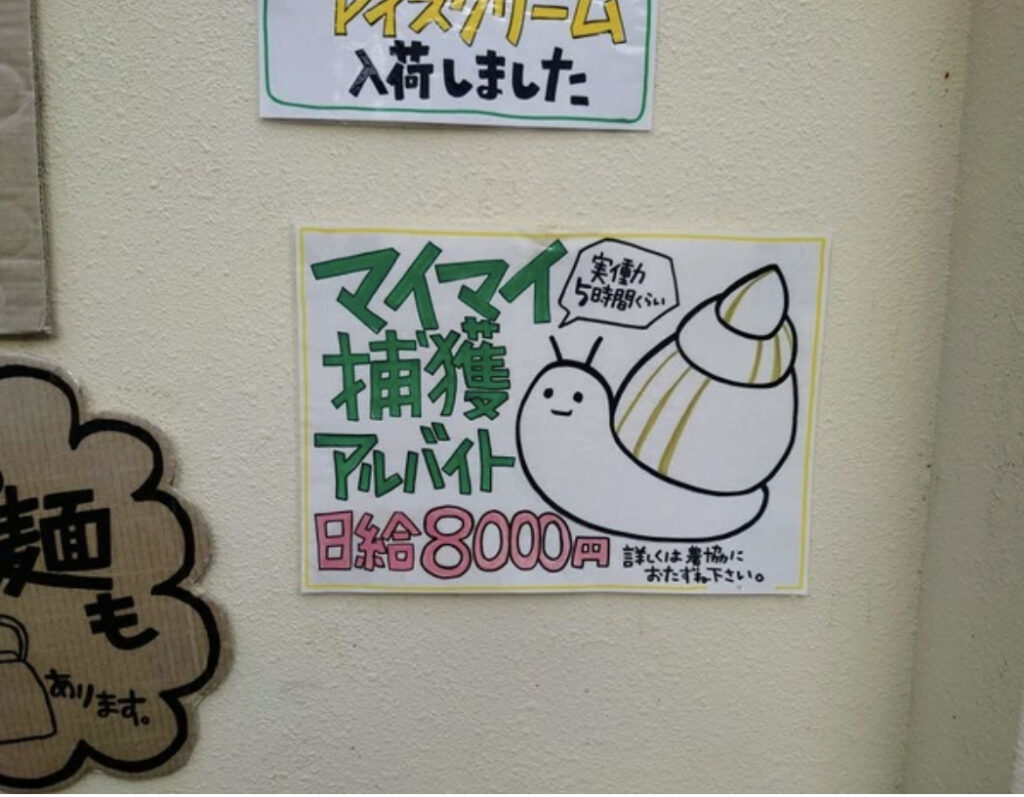 アイスクリーム
入荷しました
マイマイ
捕獲
アルバイト
日給8000円
実働
5時間くらい
詳しくは農協に
おたずね下さい。
麺
も
あります。